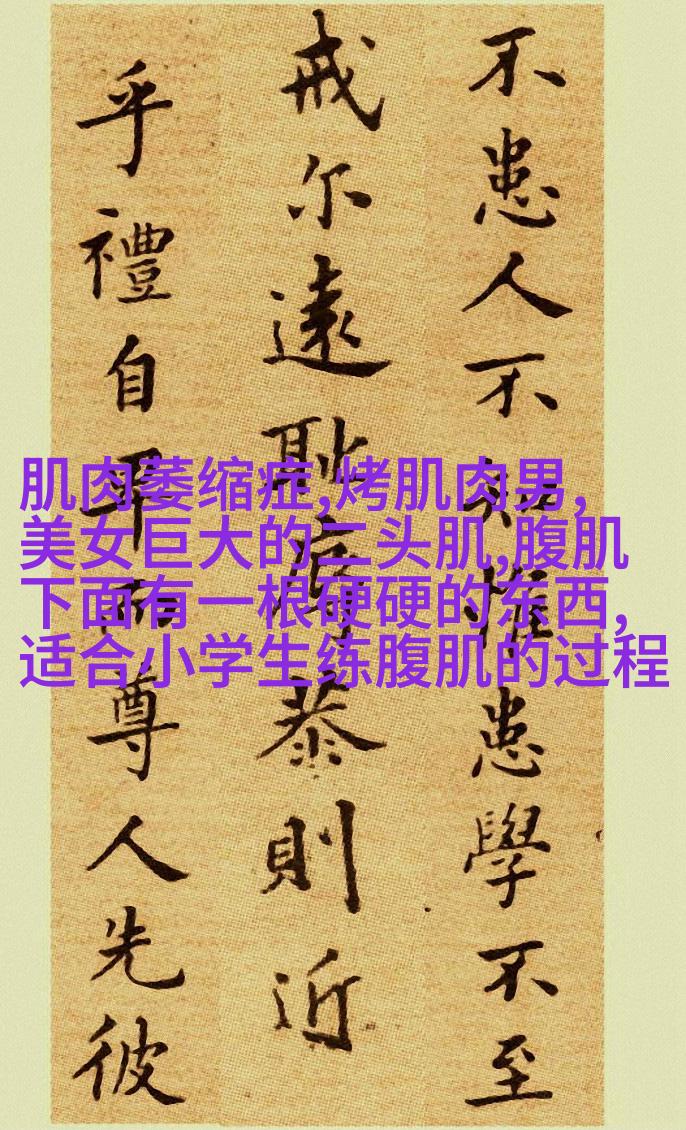 不患人不知惟患學不至
戒尔遠耻辱恭則近
乎禮自卑而尊人先彼
肌肉萎缩症,烤肌肉男,
美女巨大的二头肌,腹肌
下面有一根硬硬的东西,
适合小学生练腹肌的过程